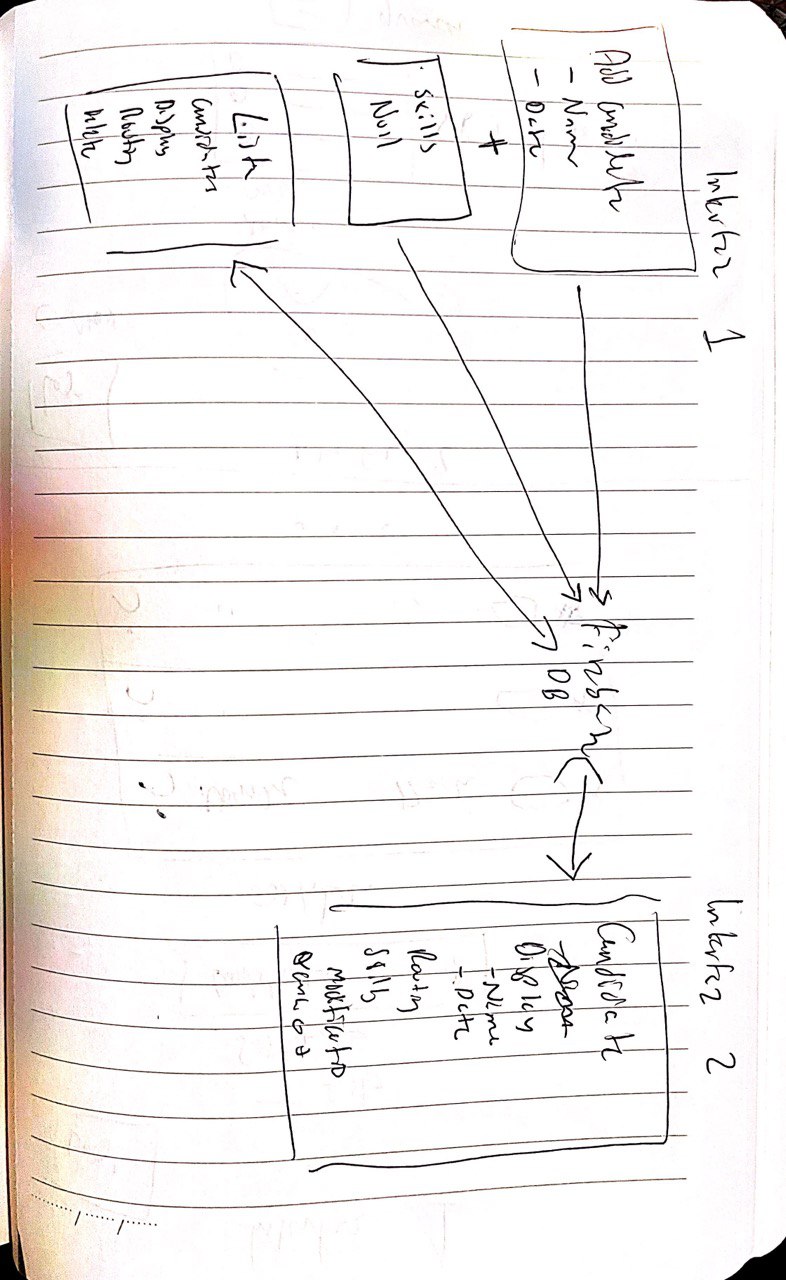 Interfaz 1
Add candidate
- Name
- Date
+
Skills
Null
Lista
Candidates
Display
Routing
Delete
Firebase
DB
Interfaz 2
Candidate
Display
- Name
- Date
Routing
Skills